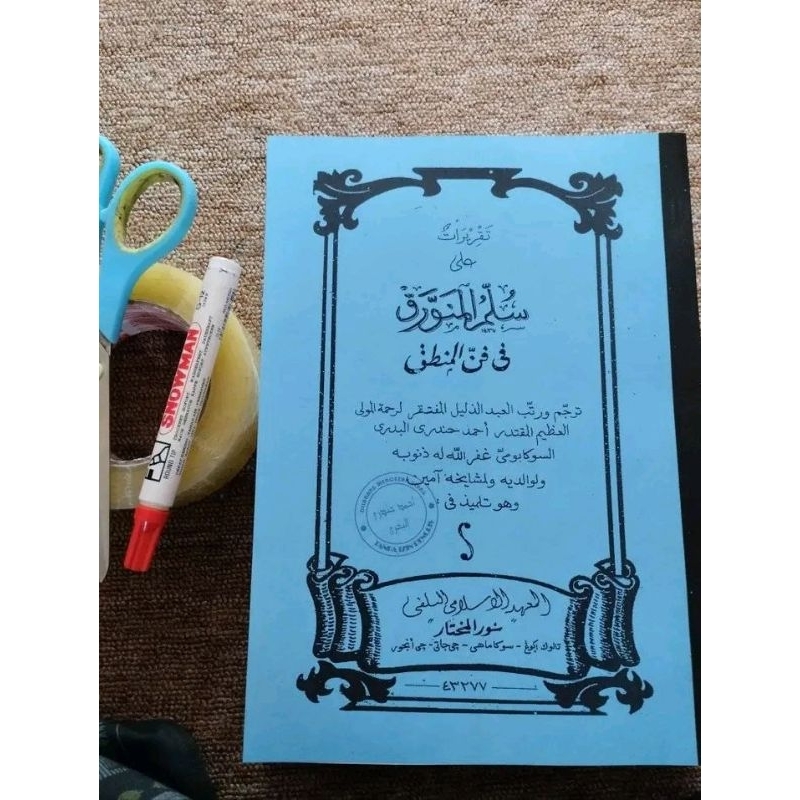 تَقْرِيْرَاتٌ
على
سُلَّمُ الْمُنَوْرَقْ
في فنّ المنطق
ترجم ورتّب العبد الذليل المفتقر لرحمة المولى
العظيم المقتدر أحمد حندرى البدرى
السوكابومىّ غفر الله له ذنوبه
ولوالديه ولمشايخه آمين
وهو تلميذ في :
المعهد الاسلامى السلفى
"نور المختار"
سوكاماهى - جى جاتى - جى انجور
٤٣٢٧٧
SNOWMAN
ROUND TIP